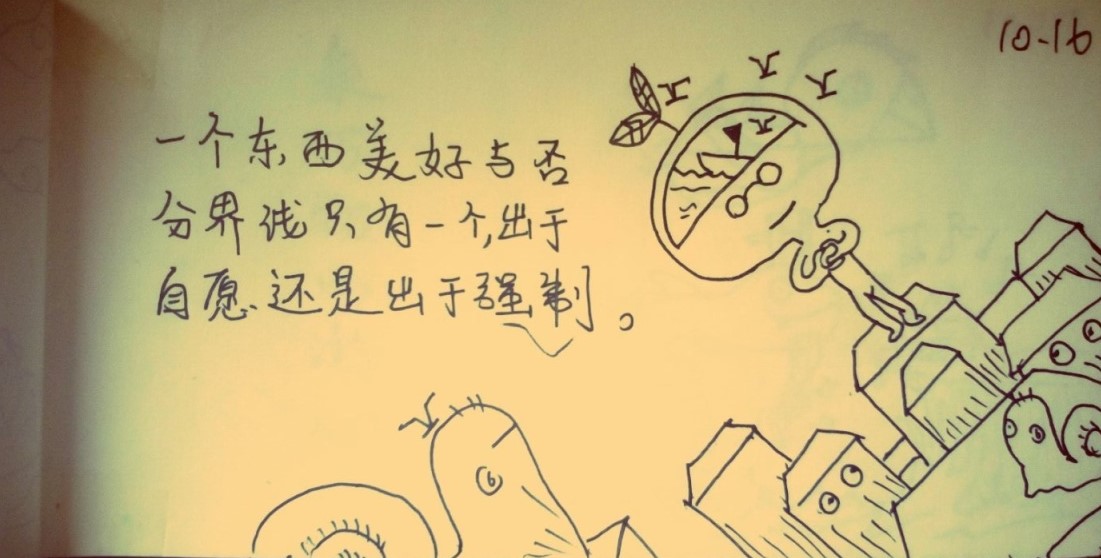 10-16
一个东西美好与否
分界线只有一个,出于
自愿、还是出于强制。